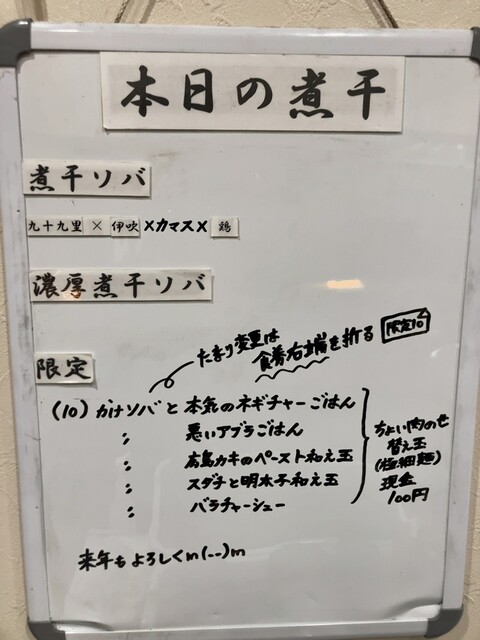 本日の煮干
煮干ソバ
九十九里×伊吹×カマス×鶏
濃厚煮干ソバ
たまり変更は
食券右端を折る
限定10
限定
(10) かけソバと本気のネギチャーごはん
〃 悪いアブラごはん
〃 広島カキのペースト和え玉
〃 スダチと明太子和え玉
〃 バラチャーシュー
ちょい肉のせ
替え玉
(極細麺)
現金
100円
来年もよろしくm(--)m